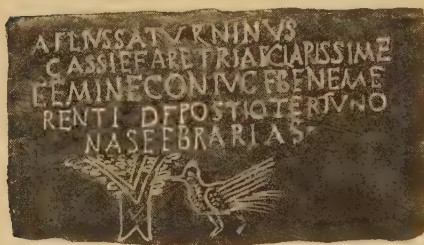 AELIUS SATURNINUS
CASSIE FARETRIAE CLARISSIME
FEMINE CONIUGE BENEME
RENTI DEPOSTIO TERTU NO
NAS FEBRARIAS